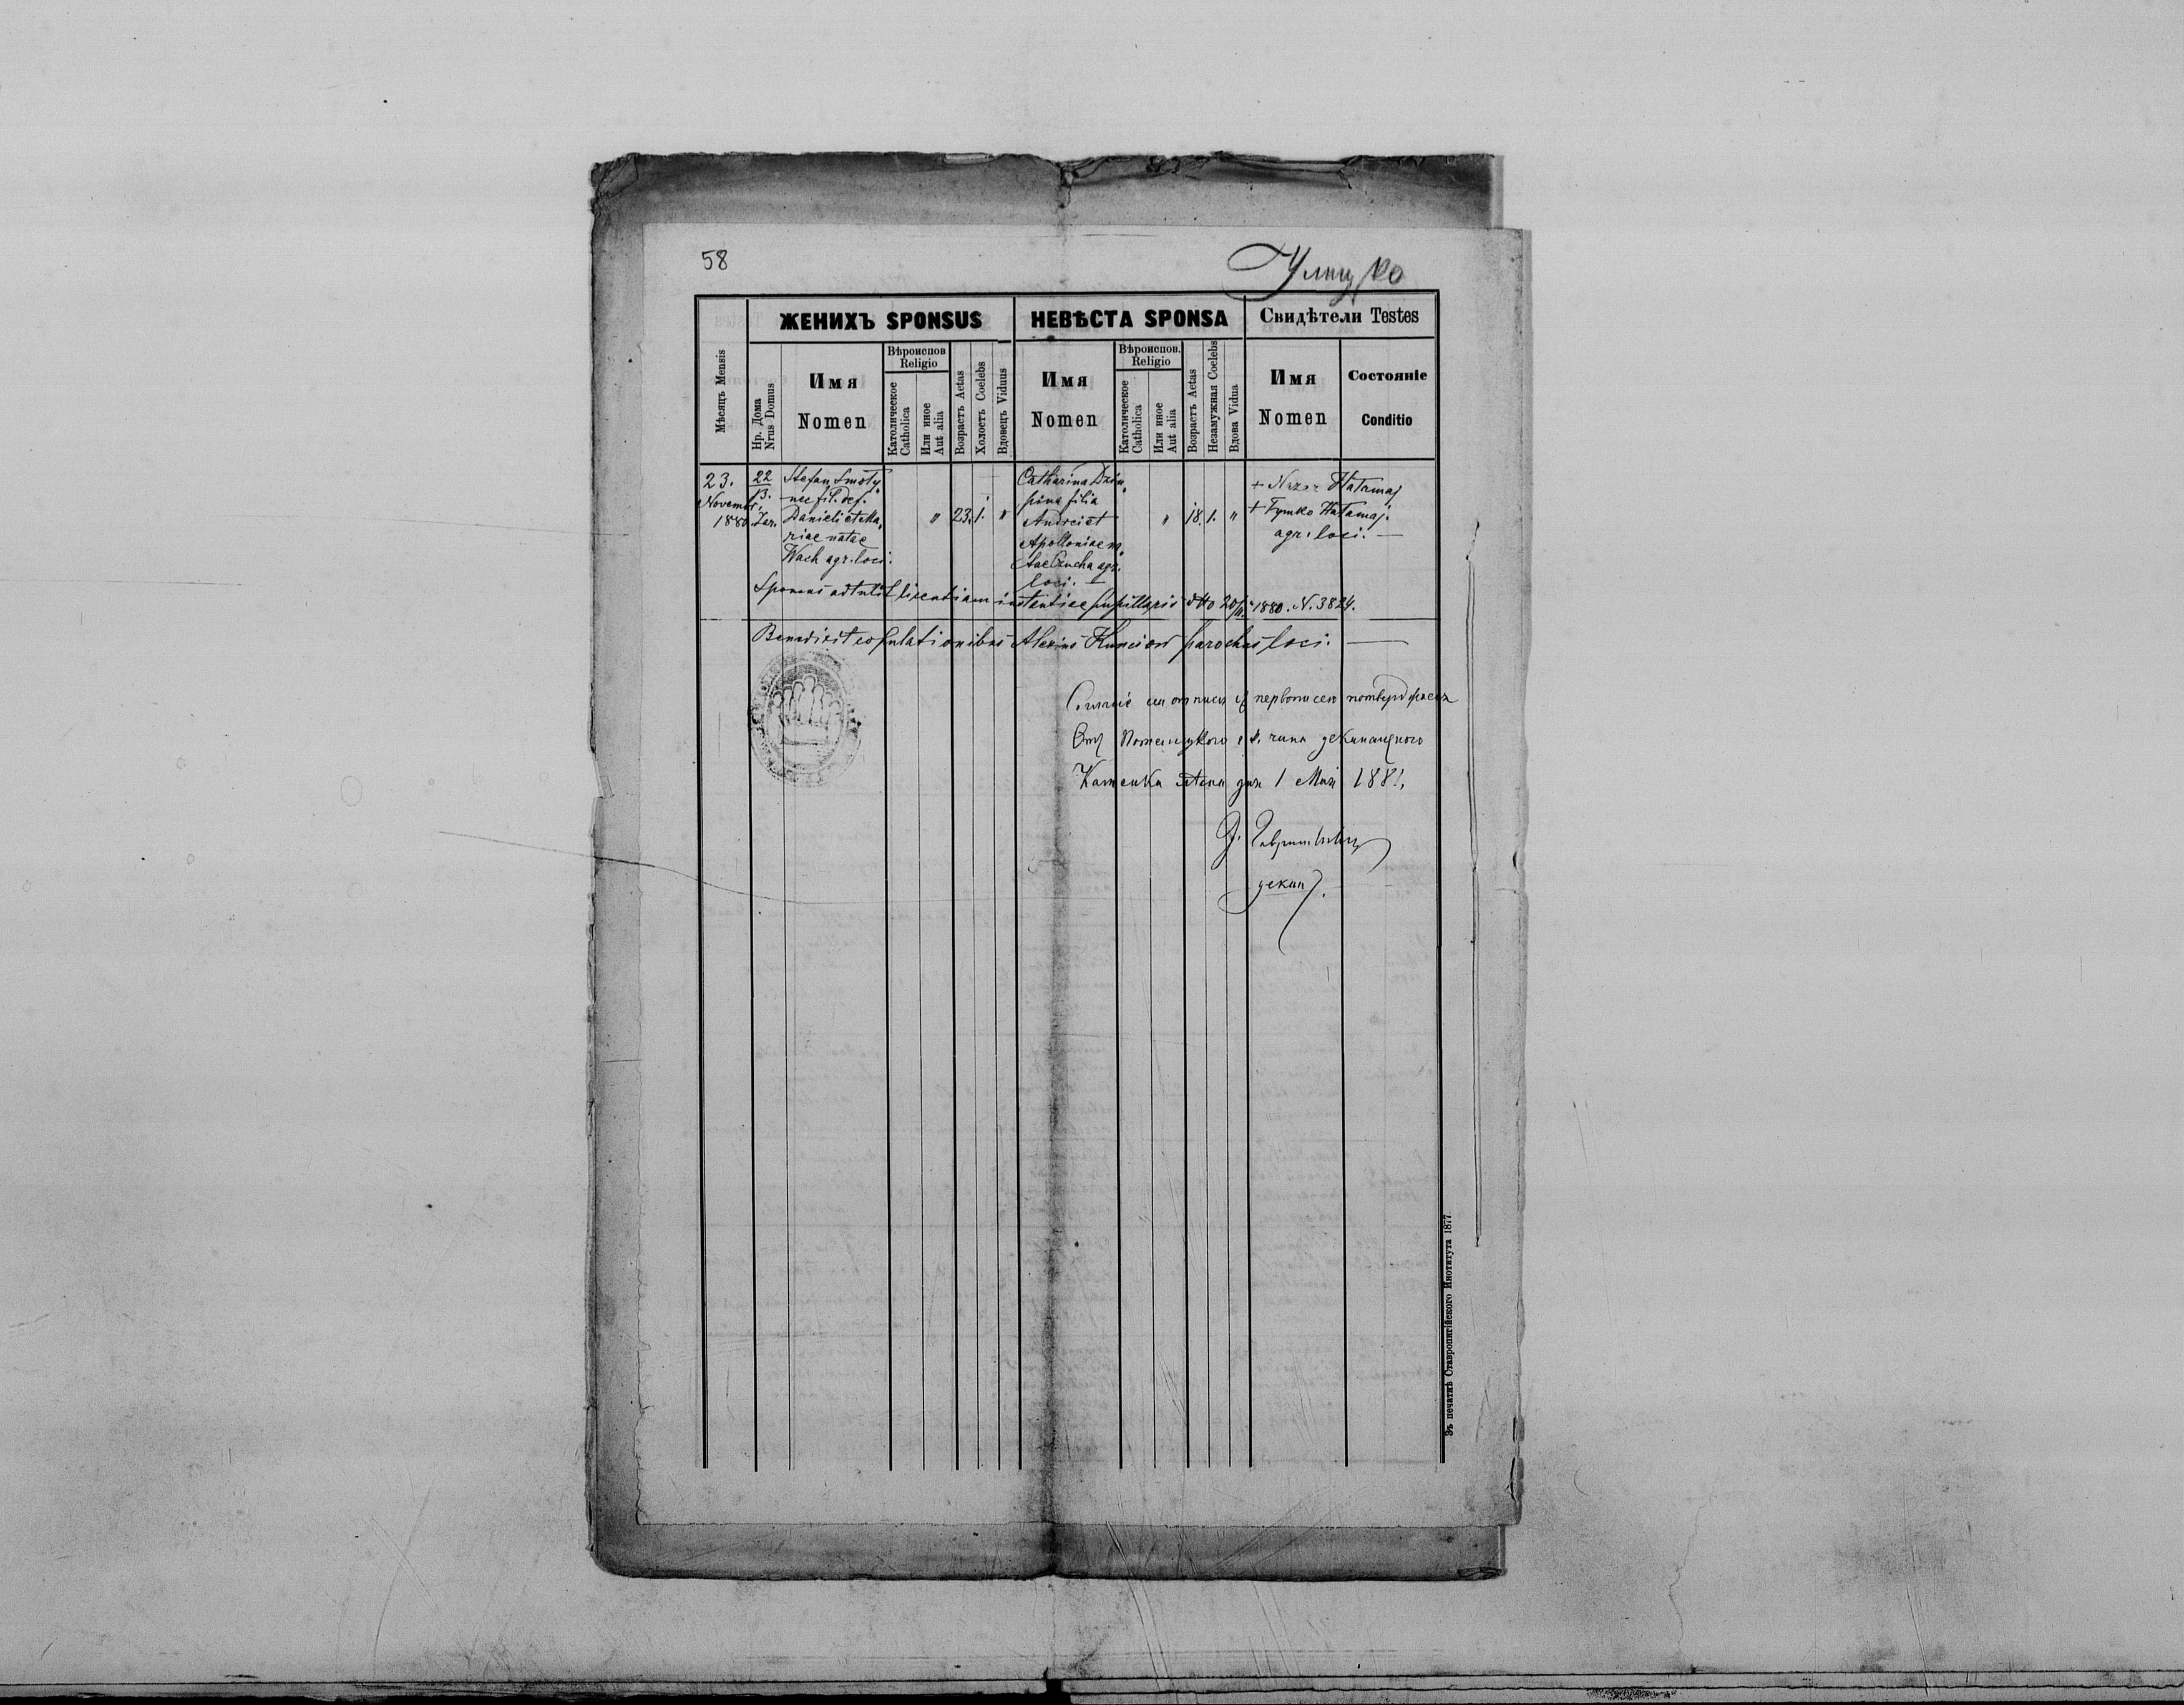 58
Улицко
ЖЕНИХЪ SPONSUS
НЕВѢСТА SPONSA
Свидѣтели Testes
Мѣсяцъ Mensis
Нр. Дома
Nrus Domus
Имя
Nomen
Вѣроиспов
Religio
Католическое
Catholica
Или иное
Aut alia
Возрастъ Aetas
Холостъ Coelebs
Вдовецъ Viduus
Имя
Nomen
Вѣроиспов.
Religio
Католическое
Catholica
Или иное
Aut alia
Возрастъ Aetas
Незамужная Coelebs
Вдова Vidua
Имя
Nomen
Состояніе
Conditio
23.
Novemb.
1880.
22
13.
Zar.
Stefan Smoły„
nec fil. def.
Danieli et Ma„
riae natae
Wach agr. loci.
" 23. 1. "
Catharina Dziu„
pina filia
Andrei et
Apolloniae na„
tae Czucha agr.
loci. —
" 18. 1. "
+ Nazar Hałamaj
+ Tymko Hałamaj.
agr. loci. —
Sponsus adtulit licentiam instantiae pupillaris dtto 20/11 1880. N. 3824.
Benedixit copulationibus Alexius Kunciow parochus loci. —
сей отписи съ первописею потверждаеся
Отъ Потелицкого г. к. чина деканального
Каменка дня 1 Мая 1881,
декан.
Зъ печатнѣ Ставропигійского Института 1877.